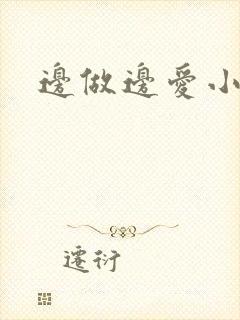 邊做邊愛小
遷衍